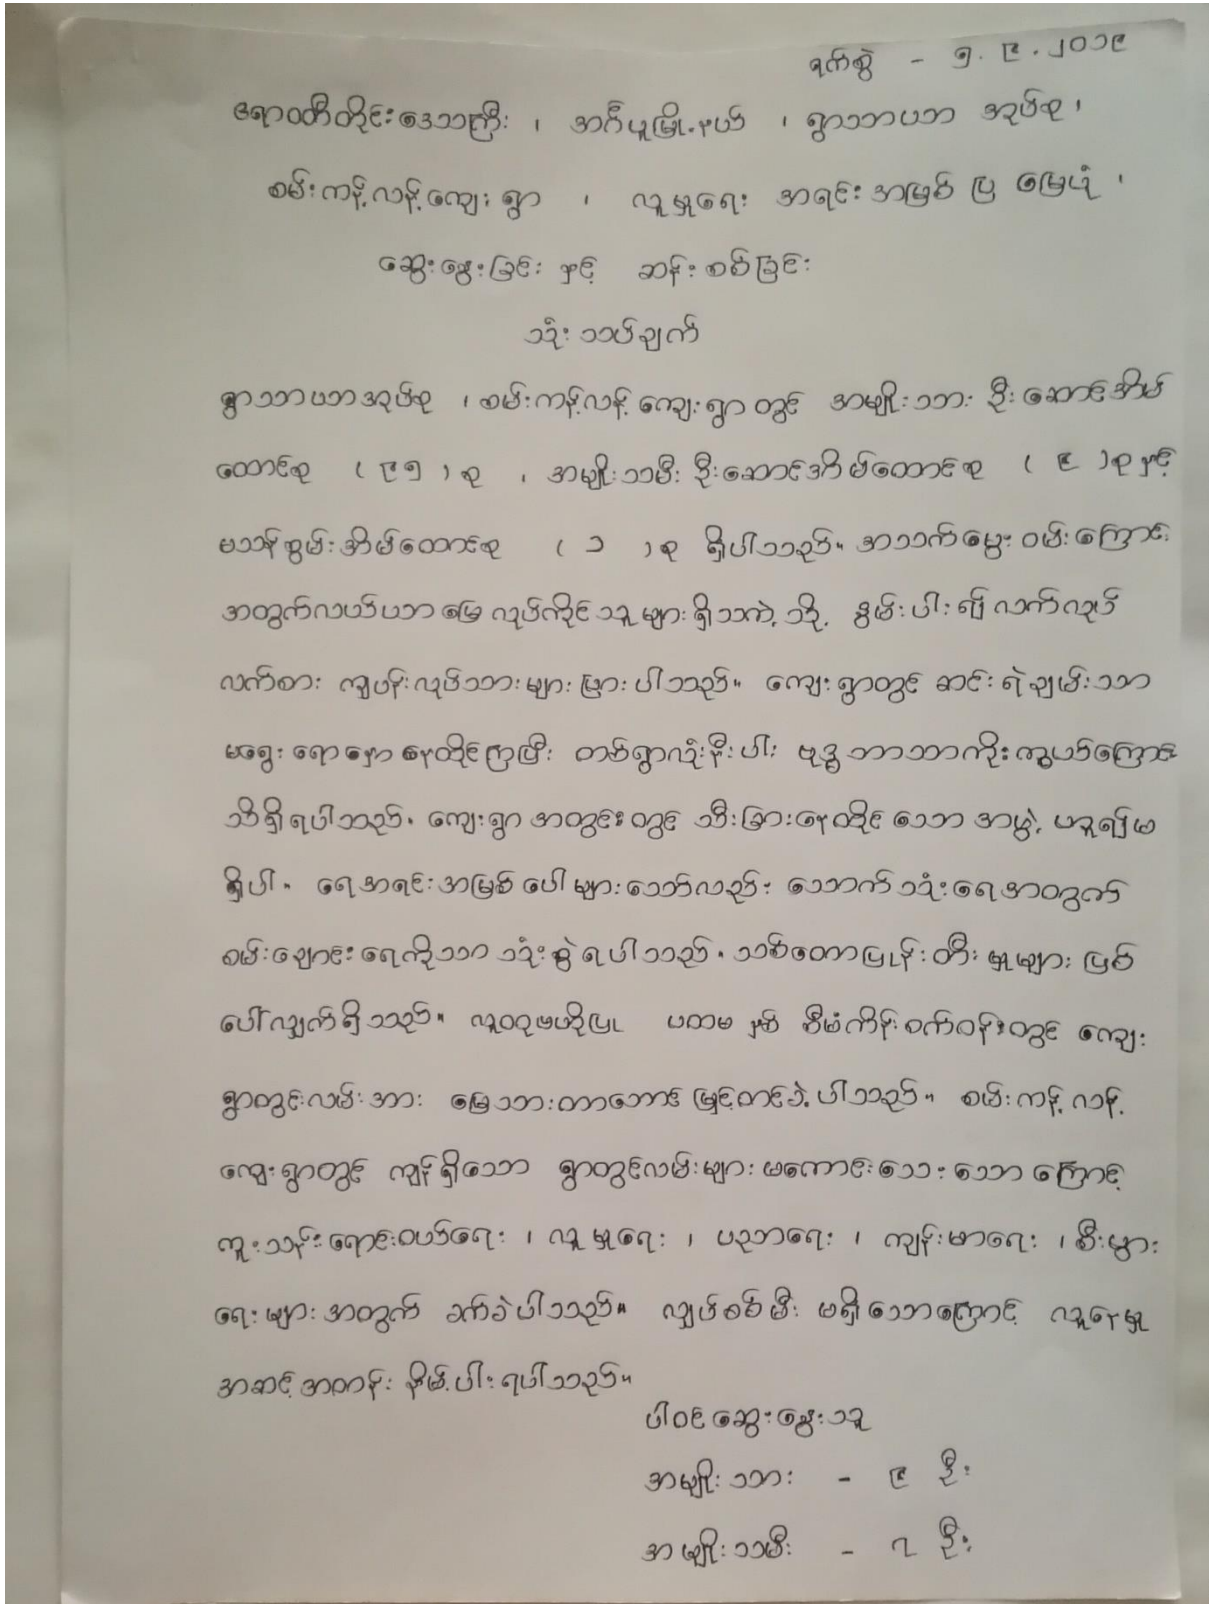 ရက်စွဲ - ၅.၉.၂၀၁၉
ဧရာဝတီတိုင်းဒေသကြီး ၊ အင်္ဂပူမြို့နယ် ၊ ရွာသာယာ အုပ်စု ၊
စမ်းကန့်လန့်ကျေးရွာ ၊ လူမှုရေး အရင်းအမြစ် ပြ မြေပုံ ၊
ဆွေးနွေးခြင်း နှင့် ဆန်းစစ်ခြင်း
သုံးသပ်ချက်
ရွာသာယာအုပ်စု ၊ စမ်းကန့်လန့် ကျေးရွာ တွင် အမျိုးသား ဦးဆောင်အိမ်
ထောင်စု ( ၉၅ ) စု ၊ အမျိုးသမီး ဦးဆောင်အိမ်ထောင်စု ( ၉ ) စု နှင့်
မသန်စွမ်းအိမ်ထောင်စု ( ၁ ) စု ရှိပါသည်။ အသက်မွေးဝမ်းကြောင်း
အတွက်လယ်ယာမြေ လုပ်ကိုင်သူများရှိသကဲ့သို့ နွမ်းပါး၍ လက်လုပ်
လက်စား ကျပန်းလုပ်သားများများပါသည်။ ကျေးရွာတွင် ဆင်းရဲချမ်းသာ
မရွေး ရောနှောနေထိုင်ကြပြီး တစ်ရွာလုံးနီးပါး ဗုဒ္ဓဘာသာကိုးကွယ်ကြောင်း
သိရှိရပါသည်။ ကျေးရွာ အတွင်းတွင် သီးခြားနေထိုင်သော အဖွဲ့ ဟူ၍မ
ရှိပါ။ ရေအရင်းအမြစ် ပေါများသော်လည်း သောက်သုံးရေအတွက်
စမ်းချောင်းရေကိုသာ သုံးစွဲရပါသည်။ သစ်တောပြုန်းတီးမှုများ ဖြစ်
ပေါ်လျှက်ရှိသည်။ လူထုဗဟိုပြု ပထမနှစ် စီမံကိန်းစက်ဝန်းတွင် ကျေး
ရွာတွင်းလမ်းအား မြေသားတာဘောင် မြှင့်တင်ခဲ့ပါသည်။ စမ်းကန့်လန့်
ကျေးရွာတွင် ကျန်ရှိသော ရွာတွင်လမ်းများ မကောင်းသေးသောကြောင့်
ကူးသန်းရောင်းဝယ်ရေး ၊ လူမှုရေး ၊ ပညာရေး ၊ ကျန်းမာရေး ၊ စီးပွား
ရေးများ အတွက် ခက်ခဲပါသည်။ လျှပ်စစ်မီး မရှိသောကြောင့် လူနေမှု
အဆင့်အတန်း နိမ့်ပါးရပါသည်။
ပါဝင်ဆွေးနွေးသူ
အမျိုးသား - ၉ ဦး
အမျိုးသမီး - ၇ ဦး